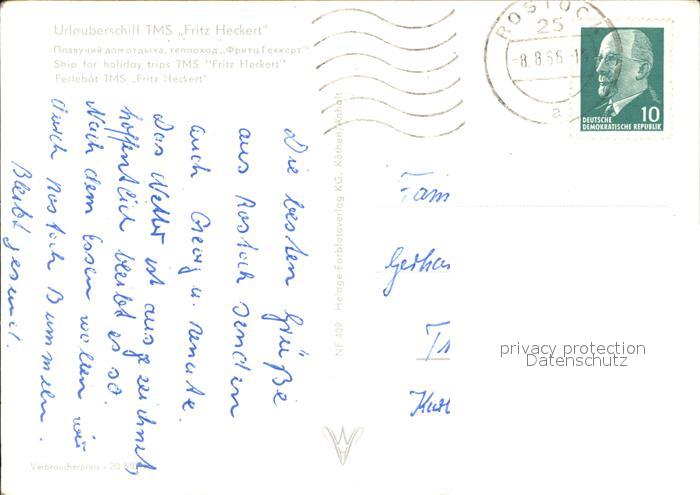 Urlauberschiff TMS „Fritz Heckert"
Плавучий дом отдыха, теплоход „Фритц Геккерт"
Ship for holiday trips TMS "Fritz Heckert"
Ferlebåt TMS „Fritz Heckert"
Die besten Grüße
aus Rostock senden
auch Georg u. Renate.
Das Wetter ist ausgezeichnet,
hoffentlich bleibt es so.
Nach dem Essen wollen wir
durch Rostock Bummeln.
Bleibt gesund.
Verbraucherpreis - 20 MDN
NF 409 Heldge-Farbfotoverlag KG, Köthen/Anhalt
ROSTOCK
25
-8.8.66-1
a
DEUTSCHE
DEMOKRATISCHE REPUBLIK
10
Fam
Gerha
Kur
privacy protection
Datenschutz